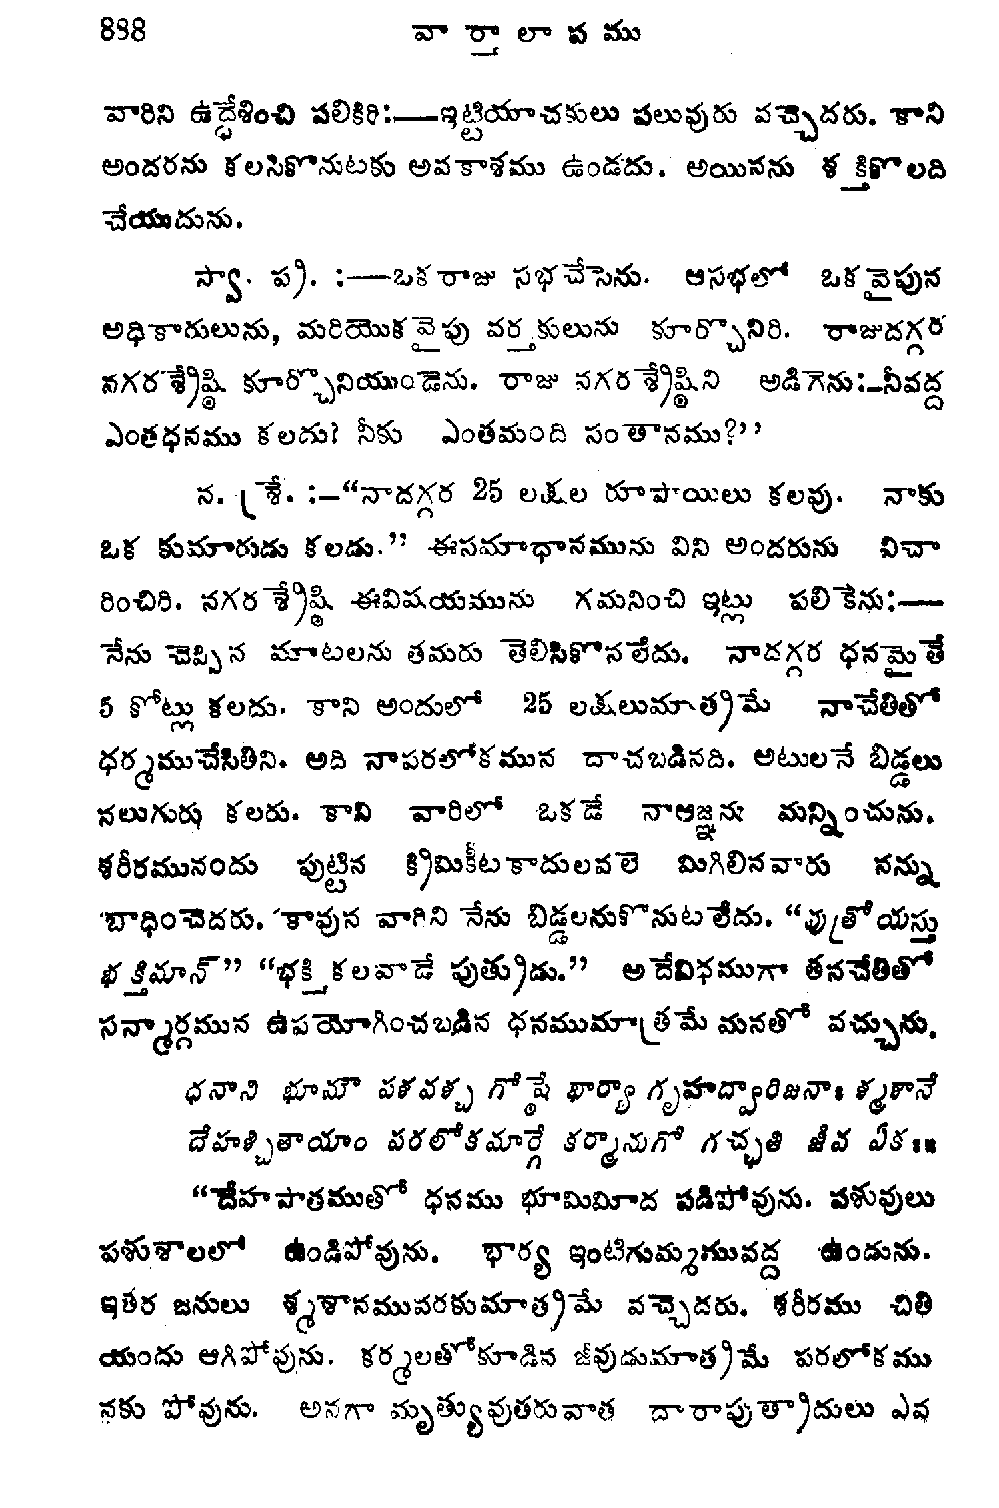 888 వార్తాలాపము
వారిని ఉద్దేశించి పలికిరి:—ఇట్టియాచకులు పలువురు వచ్చెదరు. కాని
అందరను కలసికొనుటకు అవకాశము ఉండదు. అయినను శక్తికొలది
చేయుదును.
స్వా. ప్ర. :—ఒకరాజు సభచేసెను. ఆసభలో ఒకవైపున
అధికారులును, మరియొకవైపు వర్తకులును కూర్చొనిరి. రాజుదగ్గర
నగరశ్రేష్ఠి కూర్చొనియుండెను. రాజు నగరశ్రేష్ఠిని అడిగెను:–నీవద్ద
ఎంతధనము కలదు? నీకు ఎంతమంది సంతానము?’’
న. శ్రే. :–“నాదగ్గర 25 లక్షల రూపాయిలు కలవు. నాకు
ఒక కుమారుడు కలడు.” ఈసమాధానమును విని అందరును విచా
రించిరి. నగరశ్రేష్ఠి ఈవిషయమును గమనించి ఇట్లు పలికెను:—
నేను చెప్పిన మాటలను తమరు తెలిసికొనలేదు. నాదగ్గర ధనమైతే
5 కోట్లు కలదు. కాని అందులో 25 లక్షలుమాత్రమే నాచేతితో
ధర్మముచేసితిని. అది నాపరలోకమున దాచబడినది. అటులనే బిడ్డలు
నలుగురు కలరు. కాని వారిలో ఒకడే నాఆజ్ఞను మన్నించును.
శరీరమునందు పుట్టిన క్రిమికీటకాదులవలె మిగిలినవారు నన్ను
బాధించెదరు. కావున వాగిని నేను బిడ్డలనుకొనుటలేదు. “పుత్రోయస్తు
భక్తిమాన్” “భక్తికలవాడే పుత్రుడు.” అదేవిధముగా తనచేతితో
సన్మార్గమున ఉపయోగించబడిన ధనముమాత్రమే మనతో వచ్చును.
ధనాని భూమౌ పశవశ్చ గోష్ఠే భార్యా గృహద్వారిజనాః శ్మశానే
దేహశ్చితాయాం పరలోకమార్గే కర్మానుగో గచ్ఛతి జీవ ఏకః॥
“దేహపాతముతో ధనము భూమిమీద పడిపోవును. పశువులు
పశుశాలలో ఉండిపోవును. భార్య ఇంటిగుమ్మముువద్ద ఉండును.
ఇతర జనులు శ్మశానమువరకుమాత్రమే వచ్చెదరు. శరీరము చితి
యందు ఆగిపోవును. కర్మలతోకూడిన జీవుడుమాత్రమే పరలోకము
నకు పోవును. అనగా మృత్యువుతరువాత దారాపుత్రాదులు ఎవ